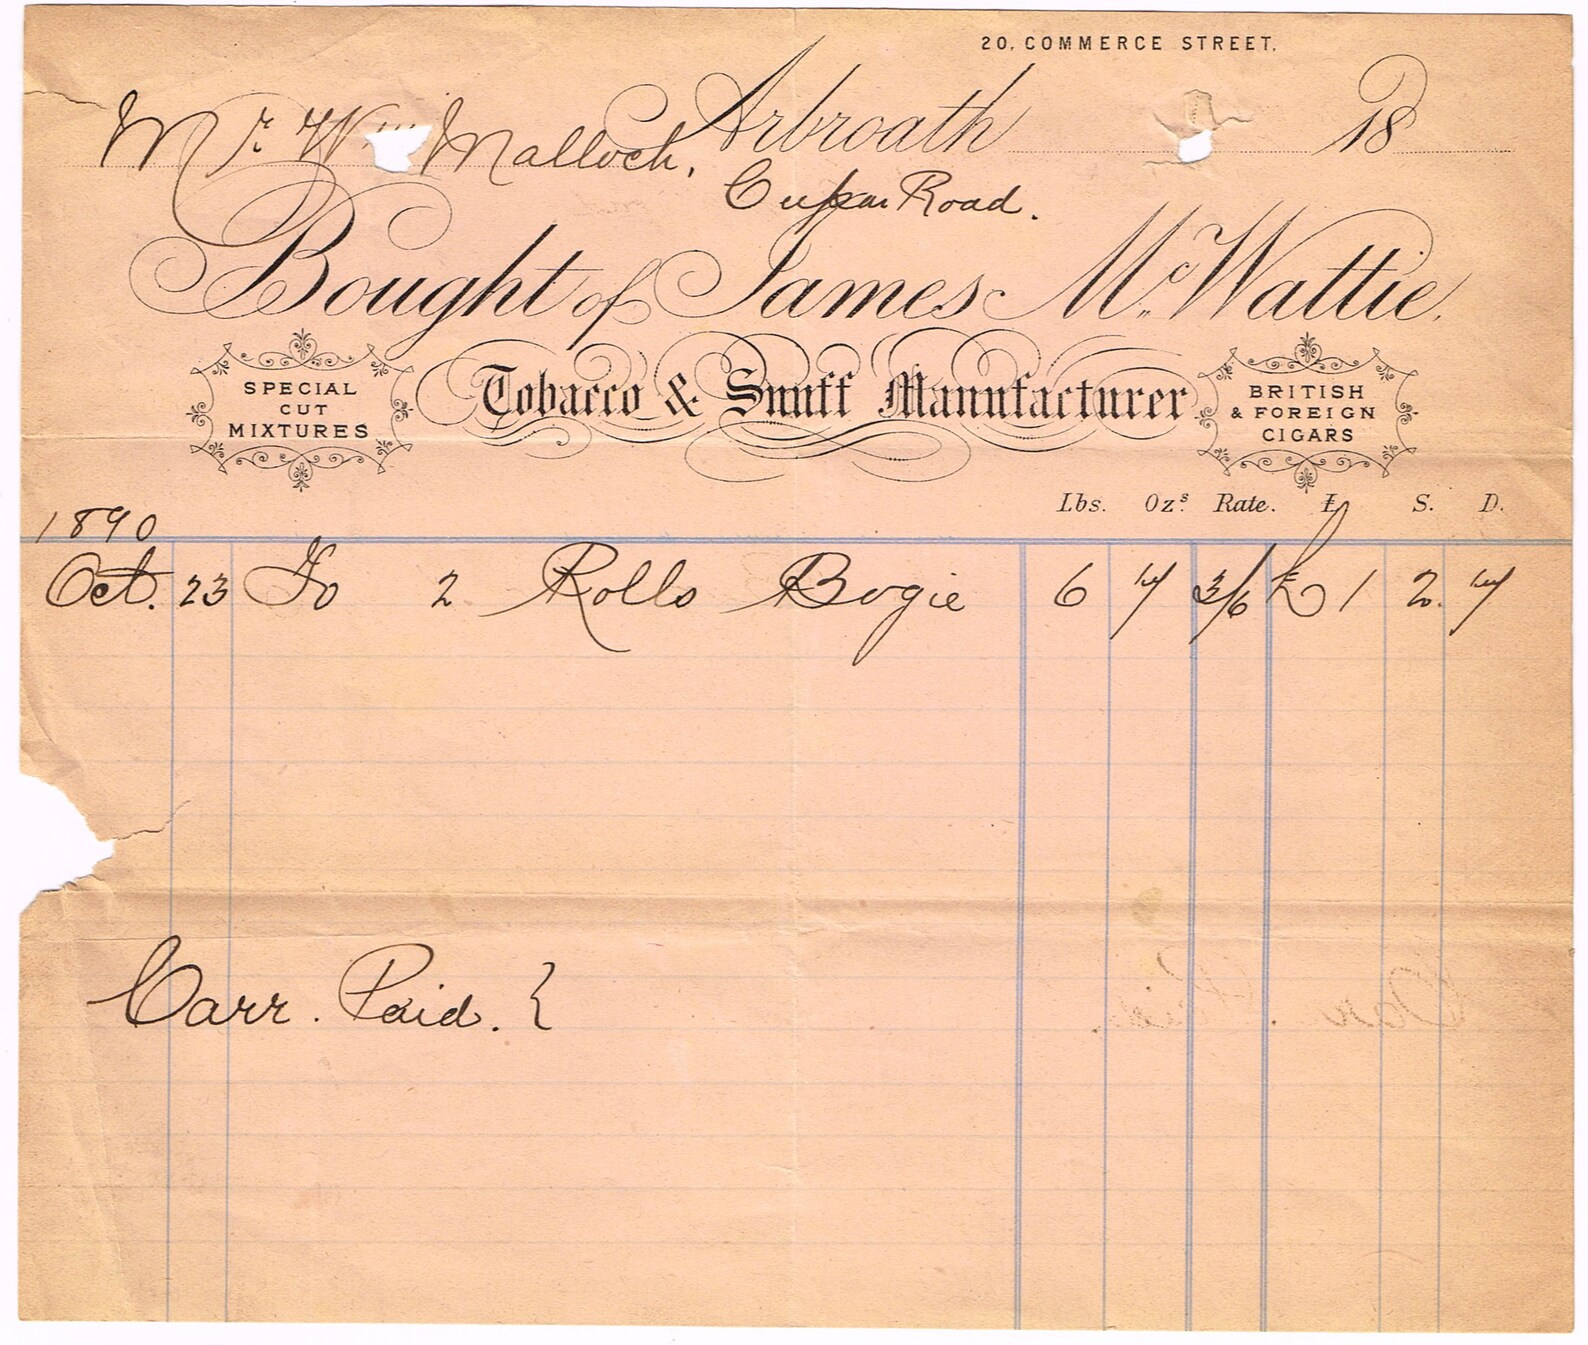 20, COMMERCE STREET.
Arbroath 18
Mr. Wm Malloch,
Cupar Road.
Bought of James McWattie,
Tobacco & Snuff Manufacturer
SPECIAL
CUT
MIXTURES
BRITISH
& FOREIGN
CIGARS
Lbs. Ozs. Rate. £ S. D.
1890
Oct. 23 To 2 Rolls Bogie 6 4 3/6 £ 1 2. 4
Carr. Paid. {